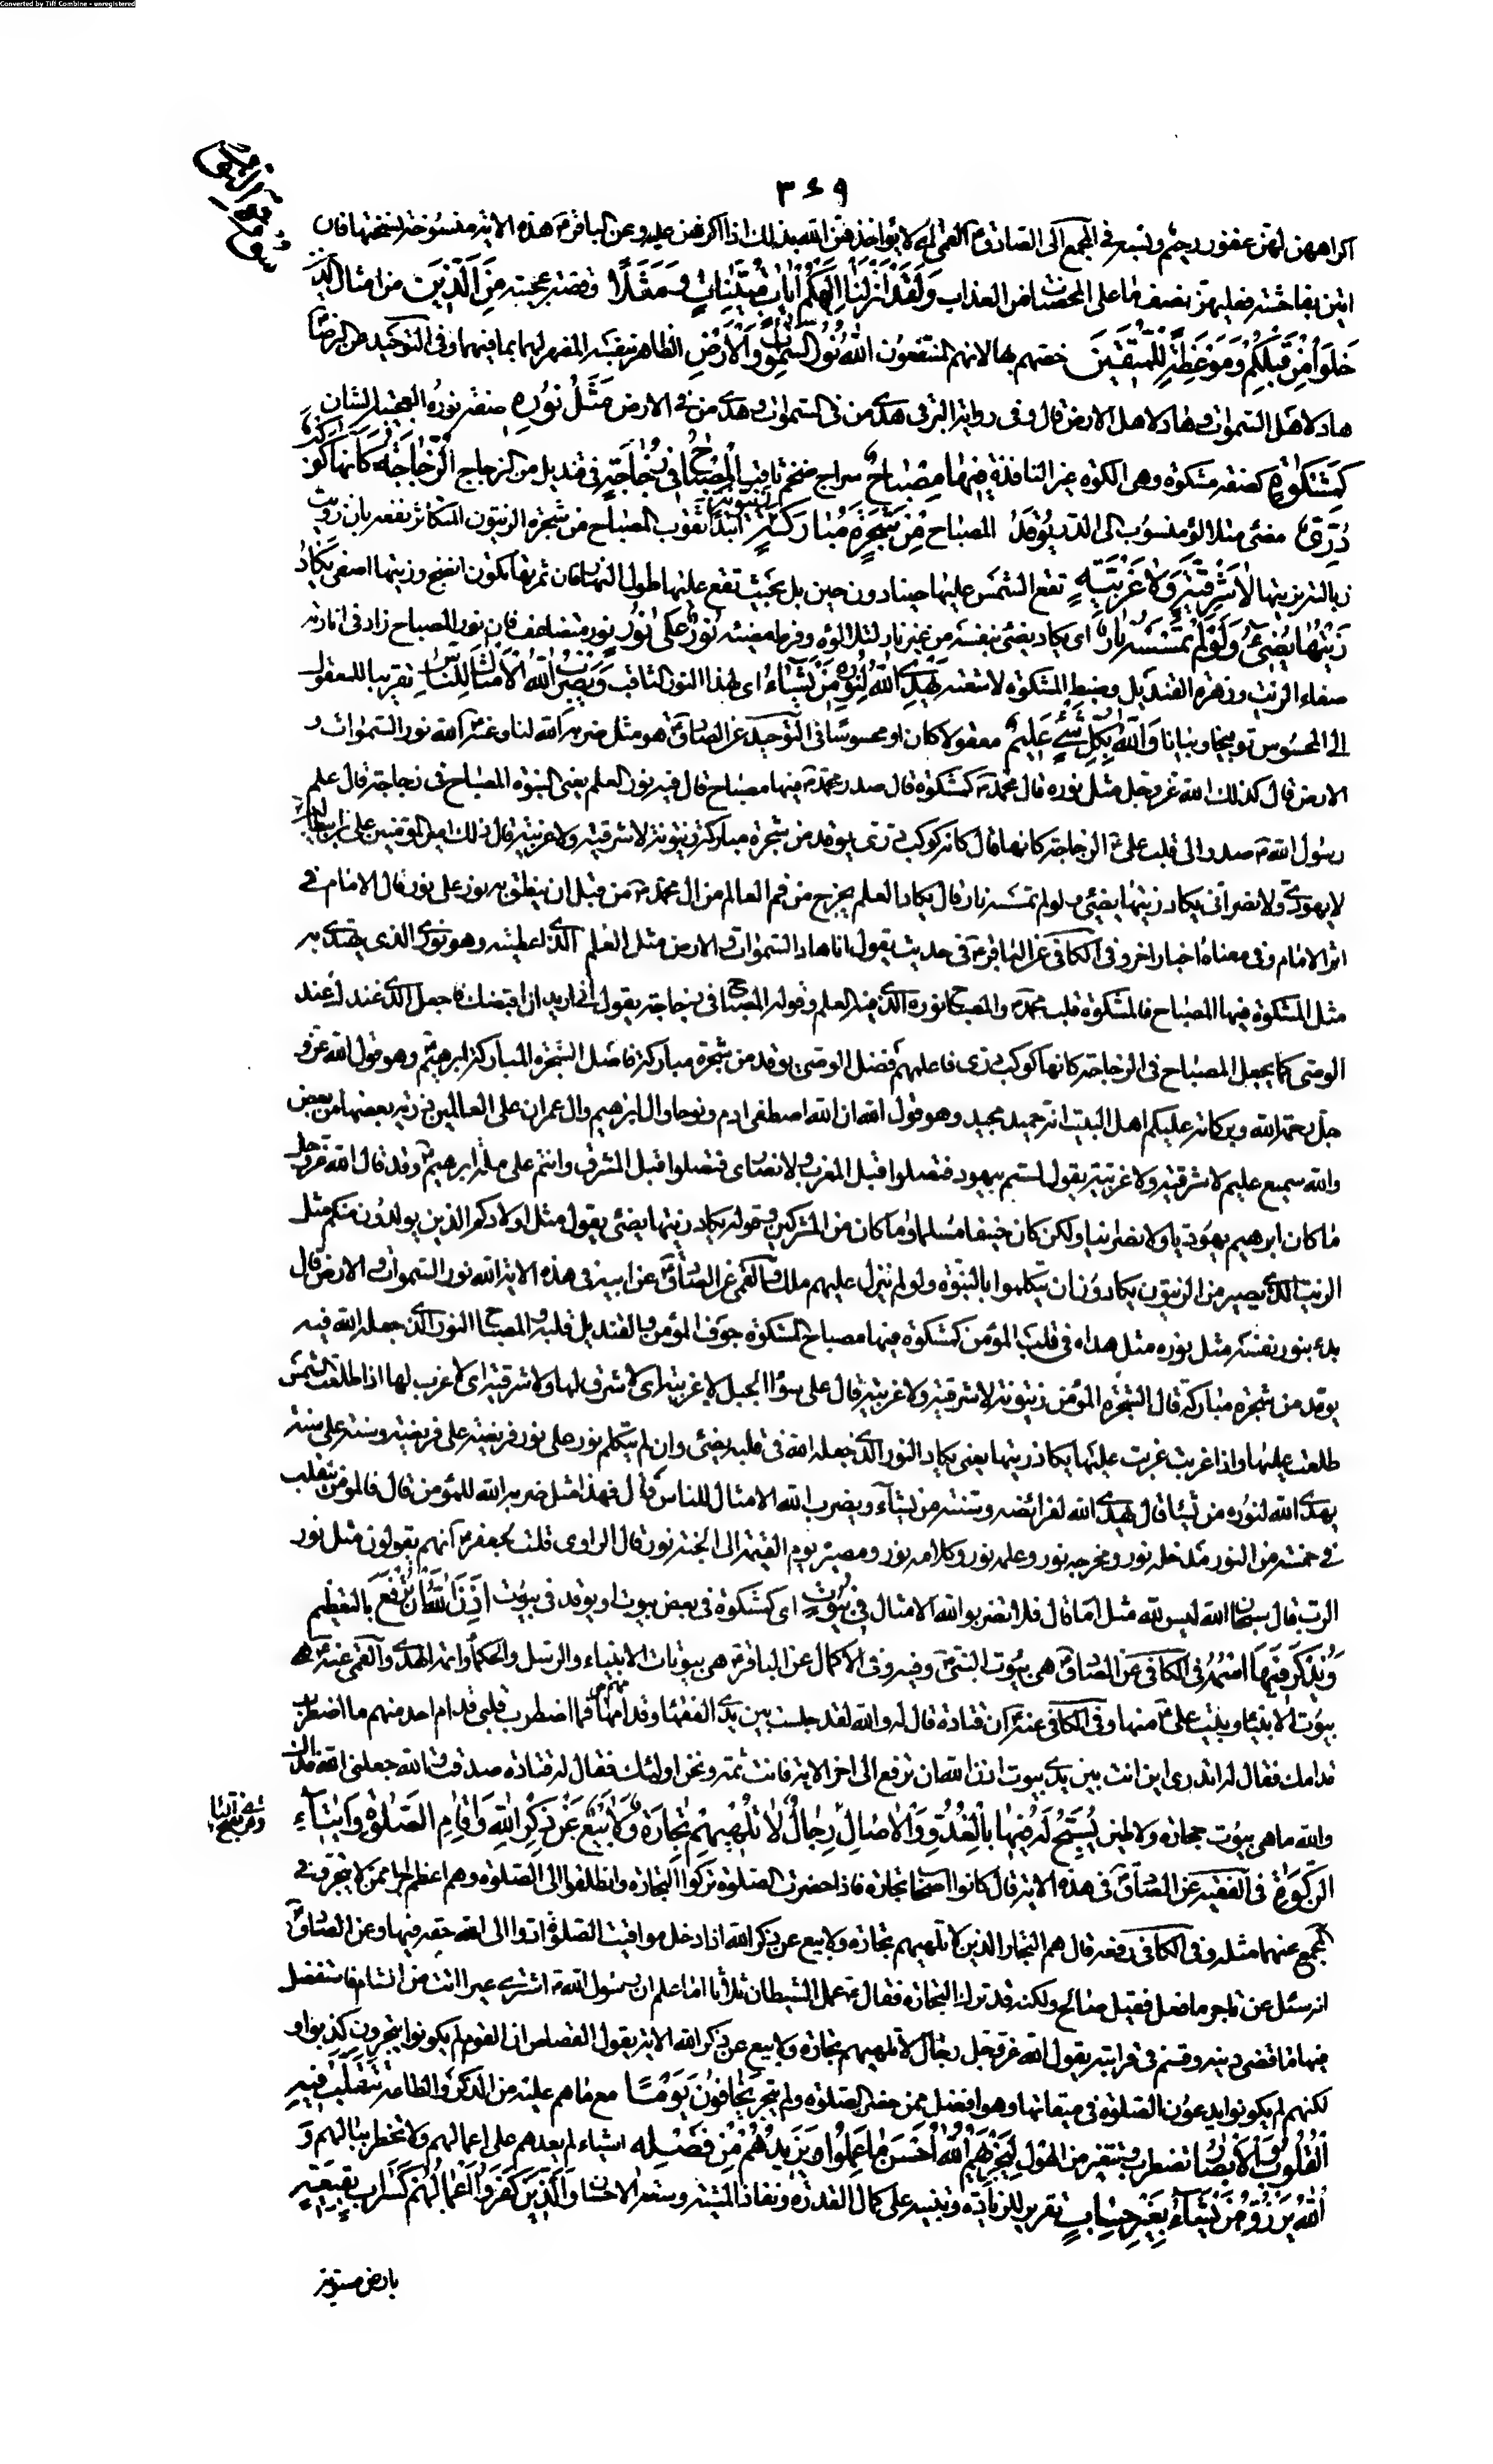 Converted by Tiff Combine - unregistered
٣٤٩
سورة النور
اكراههن لهن غفور رحيم وليس في المجمع الى الصادق ع القمي اي لا يؤاخذهن الله بذلك اذا اكرهن عليه وعن الباقر ع هذه الاية منسوخة نسختها فان
اتين بفاحشة فعليهن نصف ما على المحصنات من العذاب وَلَقَدْ أَنْزَلْنَا إِلَيْكُمْ آيَاتٍ مُبَيِّنَاتٍ وَمَثَلًا وقصة عجيبة مِنَ الَّذِينَ من امثال الذين
خَلَوْا مِنْ قَبْلِكُمْ وَمَوْعِظَةً لِلْمُتَّقِينَ خصهم بها لانهم المنتفعون اللَّهُ نُورُ السَّمَوَاتِ وَالْأَرْضِ الظاهر بنفسه المظهر لهما بما فيهما وفي التوحيد عن الرضا
هاد لاهل السموات وهاد لاهل الارض قال وفي رواية البرقي هدى من في السموات وهدى من في الارض مَثَلُ نُورِهِ صفة نوره العجيبة الشان
كَمِشْكَوةٍ كصفة مشكوة وهي الكوة غير النافذة فِيهَا مِصْبَاحٌ سراج ضخم ثاقب الْمِصْبَاحُ فِي زُجَاجَةٍ في قنديل من الزجاج الزُّجَاجَةُ كَأَنَّهَا كَوْكَبٌ
دُرِّيٌّ مضئ متلألؤ منسوب الى الدر يُوقَدُ المصباح مِنْ شَجَرَةٍ مُبَارَكَةٍ زَيْتُونَةٍ ابتدأ ثقوب المصباح من شجرة الزيتون المتكاثر نفعه بان رويت
زبالته بزيتها لَا شَرْقِيَّةٍ وَلَا غَرْبِيَّةٍ تقع الشمس عليها حينا دون حين بل بحيث تقع عليها طول النهار فان ثمرتها تكون انضج وزيتها اصفى يَكَادُ
زَيْتُهَا يُضِيءُ وَلَوْ لَمْ تَمْسَسْهُ نَارٌ اي يكاد يضئ بنفسه من غير نار لتلألؤه وفرط وميضه نُورٌ عَلَى نُورٍ نور متضاعف فان نور المصباح زاد في انارته
صفاء الزيت وزهرة القنديل وضبط المشكوة لاشعته يَهْدِي اللَّهُ لِنُورِهِ مَنْ يَشَاءُ اي لهذا النور الثاقب وَيَضْرِبُ اللَّهُ الْأَمْثَالَ لِلنَّاسِ تقريبا للمعقول
الى المحسوس توضيحا وبيانا وَاللَّهُ بِكُلِّ شَيْءٍ عَلِيمٌ معقولا كان او محسوسا في التوحيد عن الصادق ع هو مثل ضربه الله لنا وعنه ع الله نور السموات و
الارض قال كذلك الله عز وجل مثل نوره قال محمد ص كمشكوة قال صدر محمد ص فيها مصباح قال فيه نور العلم يعني النبوة المصباح في زجاجة قال علم
رسول الله ص صدر الى قلب علي ع الزجاجة كانها قال كانه كوكب دري يوقد من شجرة مباركة زيتونة لا شرقية ولا غربية قال ذلك امير المؤمنين علي بن ابيطالب
لا يهودي ولا نصراني يكاد زيتها يضئ ولو لم تمسسه نار قال يكاد العلم يخرج من فم العالم من ال محمد ص من قبل ان ينطق به نور على نور قال الامام في
اثر الامام وفي معناه اخبار اخر وفي الكافي عن الباقر ع في حديث يقول انا هاد السموات والارض مثل العلم الذي اعطيته وهو نوري الذي يهتدى به
مثل المشكوة فيها المصباح فالمشكوة قلب محمد ص والمصباح نوره الذي فيه العلم وقوله المصباح في زجاجة يقول اني اريد ان اقبضك فاجعل الذي عندك عند
الوصي كما يجعل المصباح في الزجاجة كانها كوكب دري فاعلمهم فضل الوصي يوقد من شجرة مباركة فاصل الشجرة المباركة ابرهيم ع وهو قول الله عز و
جل رحمة الله وبركاته عليكم اهل البيت انه حميد مجيد وهو قول الله ان الله اصطفى ادم ونوحا وال ابرهيم وال عمران على العالمين ذرية بعضها من بعض
والله سميع عليم لا شرقية ولا غربية يقول لستم بيهود فتصلوا قبل المغرب ولا نصارى فتصلوا قبل المشرق وانتم على ملة ابرهيم ع وقد قال الله عز وجل
ما كان ابرهيم يهوديا ولا نصرانيا ولكن كان حنيفا مسلما وما كان من المشركين وقوله يكاد زيتها يضئ يقول مثل اولادكم الذين يولدون منكم مثل
الزيت الذي يعصر من الزيتون يكادون ان يتكلموا بالنبوة ولو لم ينزل عليهم ملك والقمي عن الصادق ع عن ابيه في هذه الاية الله نور السموات والارض قال
بدء بنور نفسه مثل نوره مثل هداه في قلب المؤمن كمشكوة فيها مصباح المشكوة جوف المؤمن والقنديل قلبه والمصباح النور الذي جعله الله فيه
يوقد من شجرة مباركة قال الشجرة المؤمن زيتونة لا شرقية ولا غربية قال على سواء الجبل لا غربية اي لا شرق لها ولا شرقية اي لا غرب لها اذا طلعت الشمس
طلعت عليها واذا غربت غربت عليها يكاد زيتها يعني يكاد النور الذي جعله الله في قلبه يضئ وان لم يتكلم نور على نور فريضة على فريضة وسنة على سنة
يهدي الله لنوره من يشاء قال يهدي الله لفرائضه وسننه من يشاء ويضرب الله الامثال للناس قال فهذا مثل ضربه الله للمؤمن قال فالمؤمن يتقلب
في خمسة من النور مدخله نور ومخرجه نور وعلمه نور وكلامه نور ومصيره يوم القيمة الى الجنة نور قال الراوي قلت لجعفر ع انهم يقولون مثل نور
الرب قال سبحان الله ليس لله مثل اما قال فلا تضربوا لله الامثال فِي بُيُوتٍ اي كمشكوة في بعض بيوت او يوقد في بيوت أَذِنَ اللَّهُ أَنْ تُرْفَعَ بالتعظيم
وَيُذْكَرَ فِيهَا اسْمُهُ في الكافي عن الصادق ع هي بيوت النبي ص وفيه وفي الاكمال عن الباقر ع هي بيوتات الانبياء والرسل والحكماء وائمة الهدى والقمي عنه ع هي
بيوت الانبياء وبيت علي ع منها وفي الكافي عنه ع ان قتادة قال له والله لقد جلست بين يدي الفقهاء وقدامهم فما اضطرب قلبي قدام احد منهم ما اضطرب
قدامك فقال له اتدري اين انت بين يدي بيوت اذن الله ان ترفع الى اخر الاية فانت ثمه ونحن اولئك فقال له قتادة صدقت والله جعلني الله فداك
والله ما هي بيوت حجارة ولا طين يُسَبِّحُ لَهُ فِيهَا بِالْغُدُوِّ وَالْآصَالِ رِجَالٌ لَا تُلْهِيهِمْ تِجَارَةٌ وَلَا بَيْعٌ عَنْ ذِكْرِ اللَّهِ وَإِقَامِ الصَّلَوةِ وَإِيتَاءِ
الزَّكَوةِ في الفقيه عن الصادق ع في هذه الاية قال كانوا اصحاب تجارة فاذا حضرت الصلوة تركوا التجارة وانطلقوا الى الصلوة وهم اعظم اجرا ممن لا يتجر وفي
المجمع عنهما مثله وفي الكافي رفعه قال هم التجار الذين لا تلهيهم تجارة ولا بيع عن ذكر الله اذا دخل مواقيت الصلوة ادوا الى الله حقه فيها وعن الصادق ع
انه سئل عن تاجر ما فعل فقيل صالح ولكنه قد ترك التجارة فقال ع عمل الشيطان ثلاثا اما علم ان رسول الله ص اشترى عيرا اتت من الشام فاستفضل
فيها ما قضى دينه وقسم في قرابته يقول الله عز وجل رجال لا تلهيهم تجارة ولا بيع عن ذكر الله الاية يقول القصاص ان القوم لم يكونوا يتجرون كذبوا و
لكنهم لم يكونوا يدعون الصلوة في ميقاتها وهو افضل ممن حضر الصلوة ولم يتجر يَخَافُونَ يَوْمًا مع ما هم عليه من الذكر والطاعة تَتَقَلَّبُ فِيهِ
الْقُلُوبُ وَالْأَبْصَارُ تضطرب وتتغير من الهول لِيَجْزِيَهُمُ اللَّهُ أَحْسَنَ مَا عَمِلُوا وَيَزِيدَهُمْ مِنْ فَضْلِهِ اشياء لم يعدهم على اعمالهم ولا تخطر ببالهم وَ
اللَّهُ يَرْزُقُ مَنْ يَشَاءُ بِغَيْرِ حِسَابٍ تقرير للزيادة وتنبيه على كمال القدرة ونفاذ المشية وسعة الاحسان وَالَّذِينَ كَفَرُوا أَعْمَالُهُمْ كَسَرَابٍ بِقِيعَةٍ
بارض مستوية